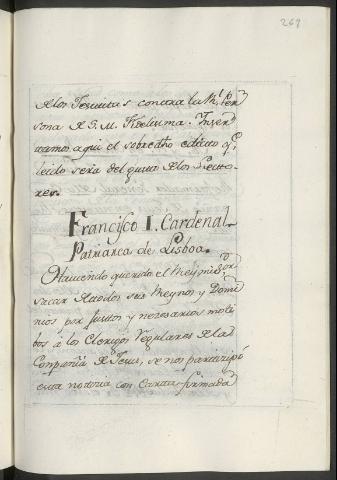 269
de los Jesuitas contra la Rl. Per
sona de S. M. Fidelisima. Inser
tamos aqui el sobredho edicto q.
leido sera del gusto de los Lecto
res.
Francisco I. Cardenal
Patriarca de Lisboa.
Haviendo querido el Rey mi Sor
sacar de todos sus Reynos y Domi
nios por justos y necesarios moti
bos a los Clerigos Regulares de la
Compañia de Jesus, se nos participó
esta noticia con Carta firmada